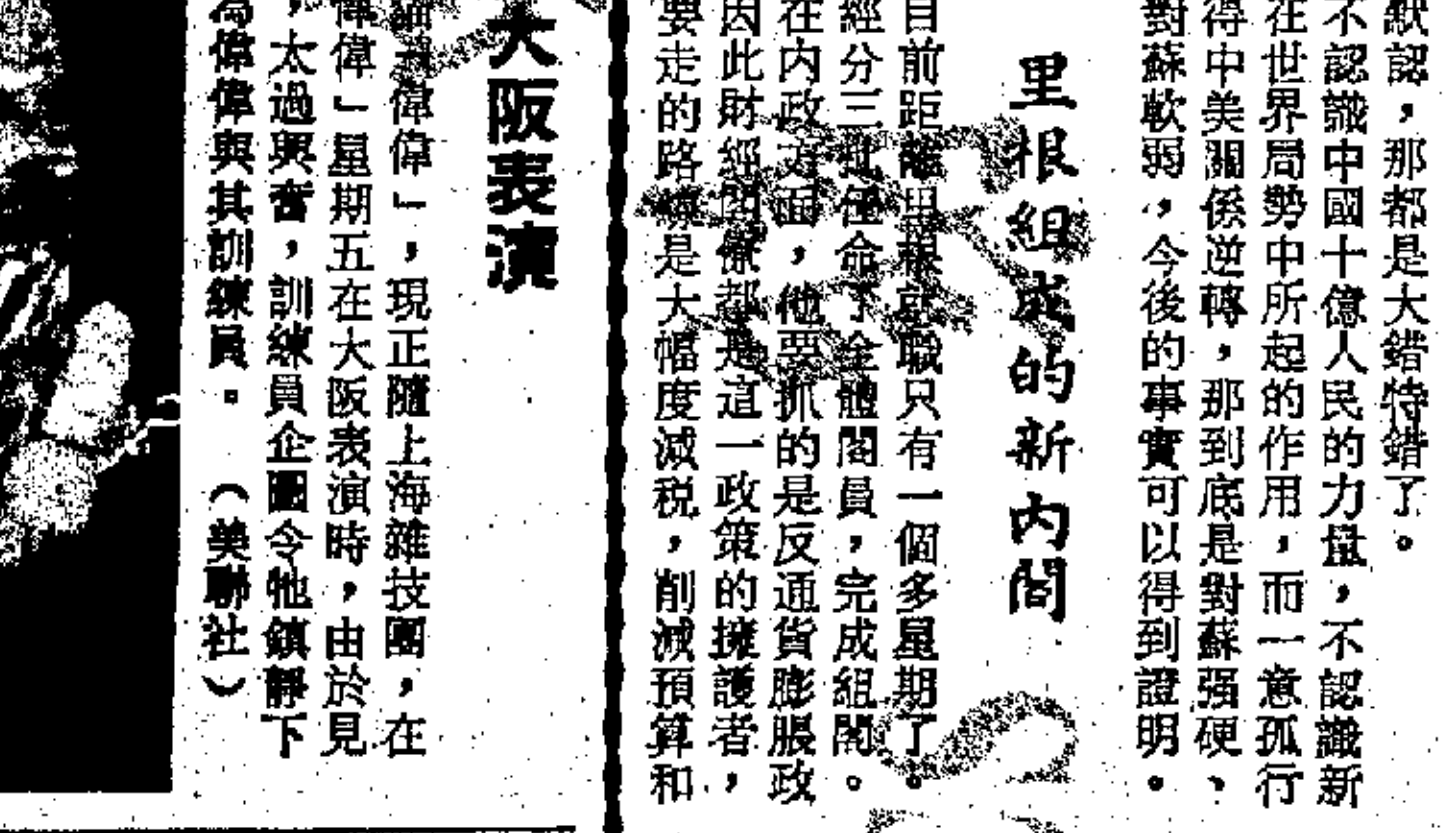 默認，那都是大錯特錯了。
不認識中國十億人民的力量，不認識新
在世界局勢中所起的作用，而一意孤行
得中美關係逆轉，那到底是對蘇强硬、
對蘇軟弱，今後的事實可以得到證明。
里根組成的新内閣
目前距離里根就職只有一個多星期了。
經分三批任命了全體閣員，完成組閣。
在内政方面，他要抓的是反通貨膨脹政
因此財經閣僚都是這一政策的擁護者，
要走的路線是大幅度减税，削减預算和
大阪表演
猫「偉偉」，現正隨上海雜技團，在
偉偉」星期五在大阪表演時，由於見
，太過興奮，訓練員企圖令牠鎮靜下
為偉偉與其訓練員。（美聯社）